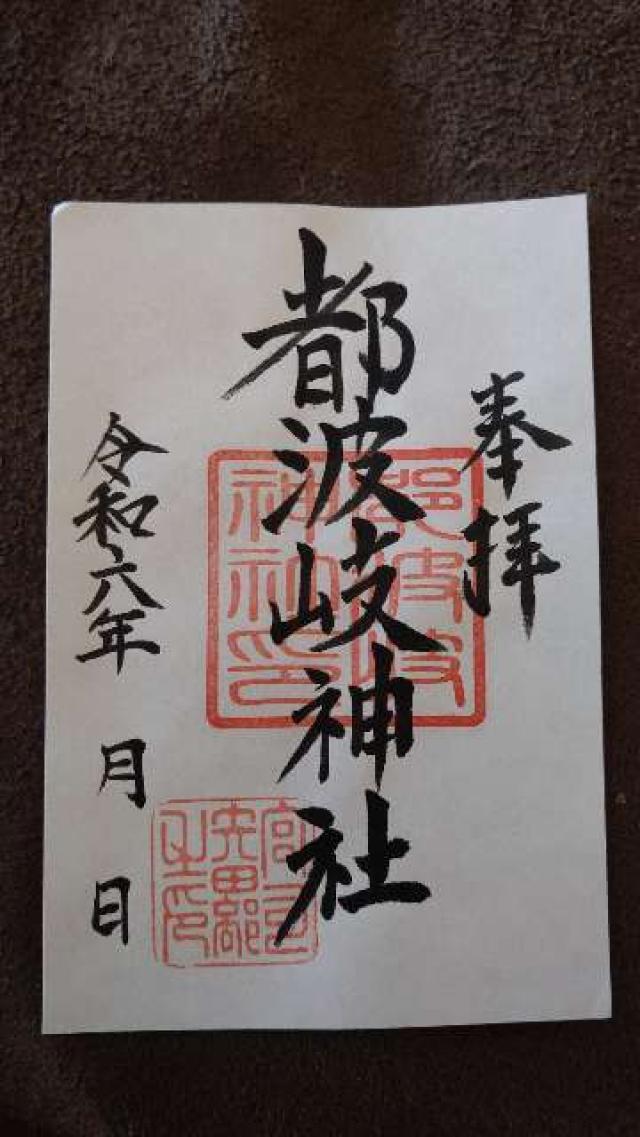 奉拝
都波岐神社
都波岐
神社印
令和六年　月　日